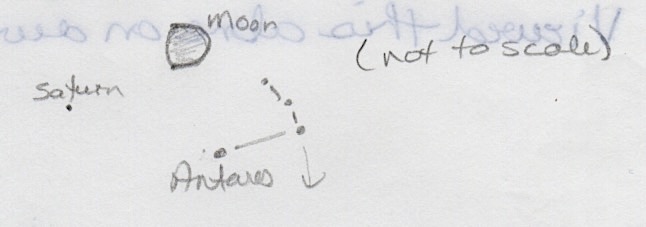 Moon
(not to scale)
Saturn
Antares